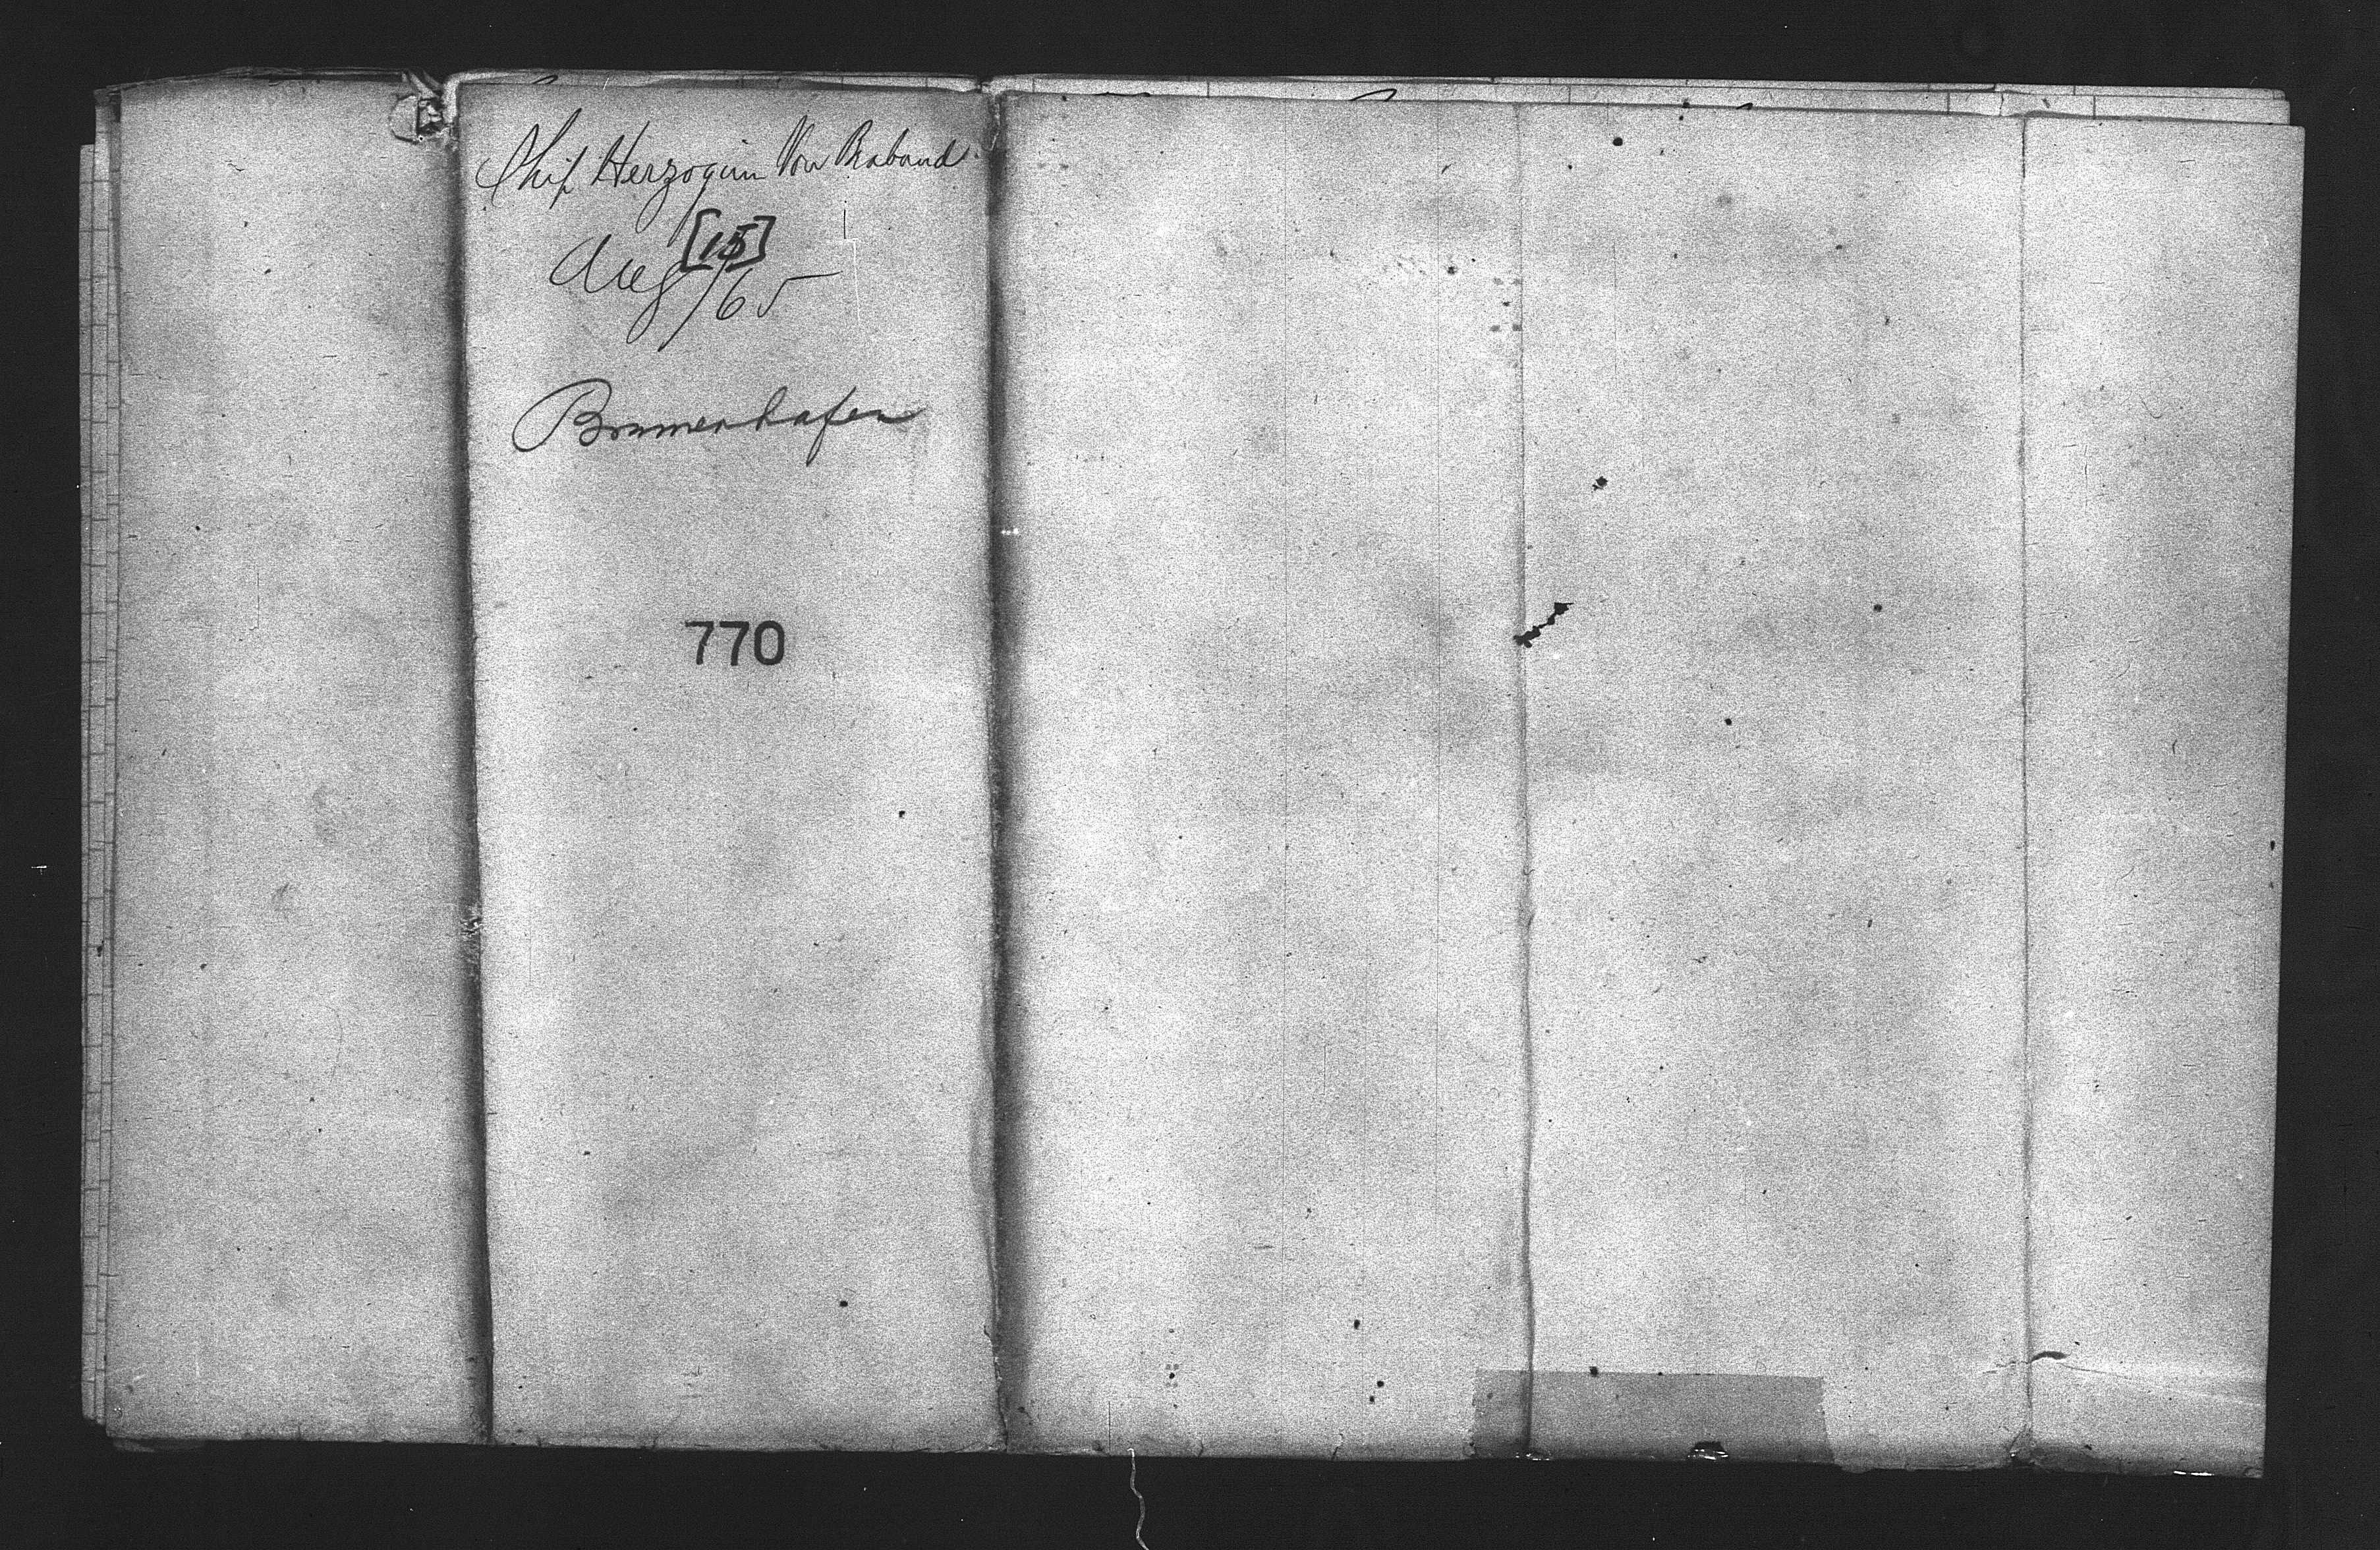 Ship Herzogin Von Braband
[15]
Aug/65
Bremenhafen
770